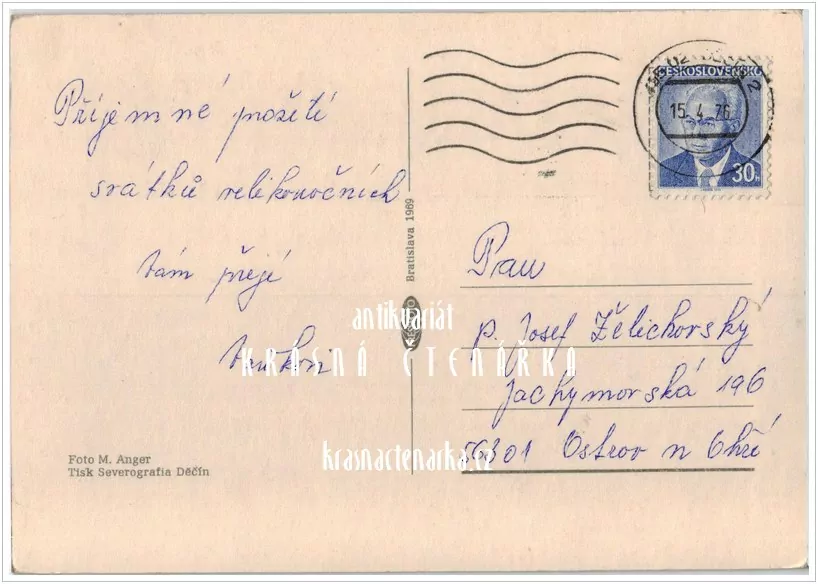 Příjemné prožití
svátků velikonočních
Vám přejí
ČESKOSLOVENSKO
15.4.76
30h
Bratislava 1969
Pan
p. Josef Želichovský
Jachymovská 196
36301 Ostrov n Ohří
Foto M. Anger
Tisk Severografia Děčín
antikvariát
KRÁSNÁ ČTENÁŘKA
krasnactenarka.cz